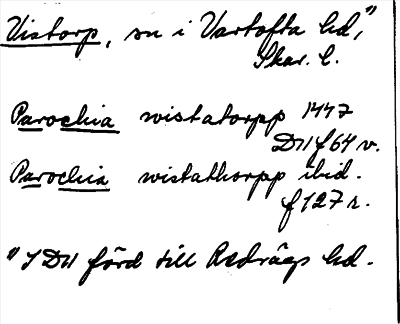 Vistorp, sn i Vartofta hd,"
Skar. l.
Parochia wistatorpp 1447
D11 f 64 v.
Parochia wistathorpp ibid.
f 127 r.
" I D11 förd till Redvägs hd.